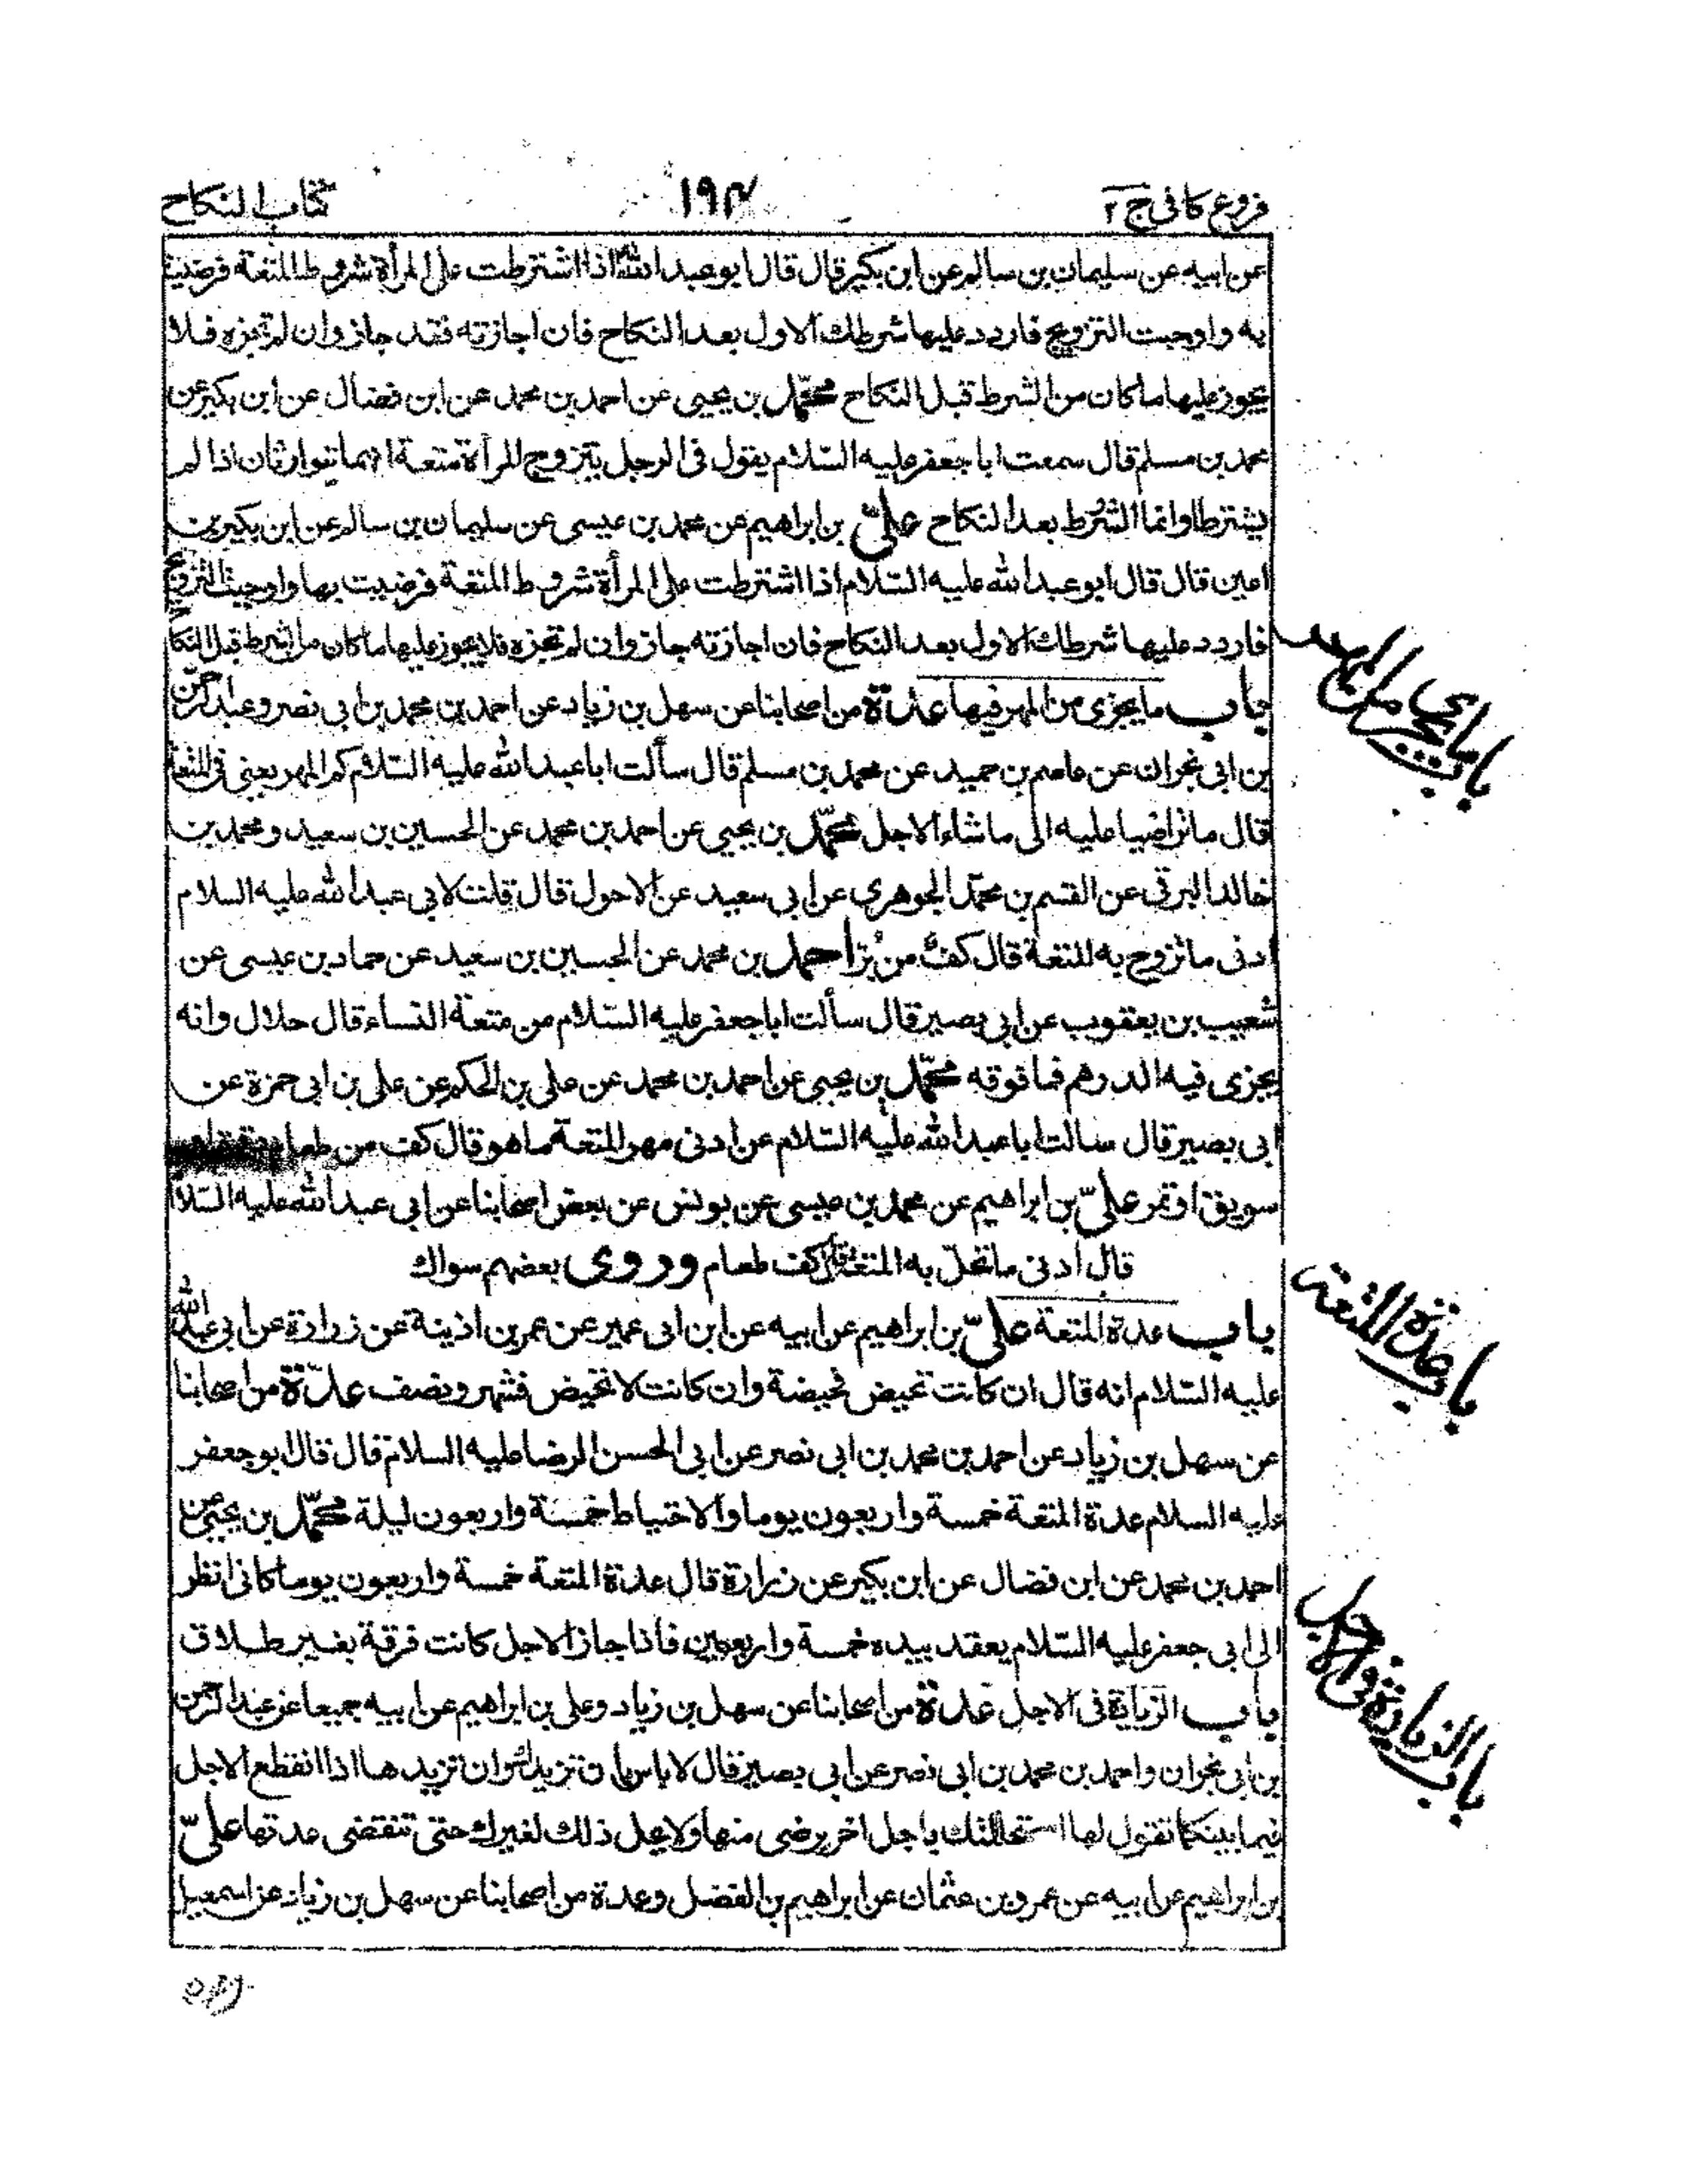 فروع كافى ج ٢
١٩٤
كتاب النكاح
عن ابيه عن سليمان بن سالم عن ابن بكير قال قال ابو عبد الله اذا اشترطت على المرأة شروط المتعة فرضيت
به واوجبت التزويج فاردد عليها شرطك الاول بعد النكاح فان اجازته فقد جاز وان لم تجزه فلا
يجوز عليها ما كان من الشرط قبل النكاح محمّد بن يحيى عن احمد بن محمد عن ابن فضال عن ابن بكير عن
محمد بن مسلم قال سمعت ابا جعفر عليه السّلام يقول فى الرجل يتزوج المرأة متعة انهما يتوارثان اذا لم
يشترطا وانما الشرط بعد النكاح علىّ بن ابراهيم عن محمد بن عيسى عن سليمان بن سالم عن ابن بكير بن
اعين قال قال ابو عبد الله عليه السّلام اذا اشترطت على المرأة شروط المتعة فرضيت بها واوجبت التزويج
فاردد عليها شرطك الاول بعد النكاح فان اجازته جاز وان لم تجزه فلا يجوز عليها ما كان من الشرط قبل النكاح
باب ما يجزى من المهر فيها عدّة من اصحابنا عن سهل بن زياد عن احمد بن محمد بن ابى نصر وعبد الرحمن
بن ابى نجران عن عاصم بن حميد عن محمد بن مسلم قال سألت ابا عبد الله عليه السّلام كم المهر يعنى فى المتعة
قال ما تراضيا عليه الى ما شاء الاجل محمّد بن يحيى عن احمد بن محمد عن الحسين بن سعيد ومحمد بن
خالد البرقى عن القسم بن محمّد الجوهرى عن ابى سعيد عن الاحول قال قلت لابى عبد الله عليه السلام
ادنى ما تزوج به المتعة قال كف من بُرّ احمد بن محمد عن الحسين بن سعيد عن حماد بن عيسى عن
شعيب بن يعقوب عن ابى بصير قال سألت ابا جعفر عليه السّلام من متعة النساء قال حلال وانه
يجزى فيه الدرهم فما فوقه محمّد بن يحيى عن احمد بن محمد عن على بن الحكم عن على بن ابى حمزة عن
ابى بصير قال سالت ابا عبد الله عليه السّلام عن ادنى مهر المتعة ما هو قال كف من طعام دقيق او
سويق او تمر علىّ بن ابراهيم عن محمد بن عيسى عن يونس عن بعض اصحابنا عن ابى عبد الله عليه السّلا
قال ادنى ما تحلّ به المتعة قال كف طعام وروى بعضهم سواك
باب عدة المتعة علىّ بن ابراهيم عن ابيه عن ابن ابى عمير عن عمر بن اذينة عن زرارة عن ابى عبد الله
عليه السّلام انه قال ان كانت تحيض فحيضة وان كانت لا تحيض فشهر ونصف عدّة من اصحابنا
عن سهل بن زياد عن احمد بن محمد بن ابى نصر عن ابى الحسن الرضا عليه السلام قال قال ابو جعفر
عليه السلام عدة المتعة خمسة واربعون يوما والاحتياط خمسة واربعون ليلة محمّد بن يحيى عن
احمد بن محمد عن ابن فضال عن ابن بكير عن زرارة قال عدة المتعة خمسة واربعون يوما كانى انظر
الى ابى جعفر عليه السّلام يعقد بيده خمسة واربعين فاذا جاز الاجل كانت فرقة بغير طلاق
باب الزيادة فى الاجل عدّة من اصحابنا عن سهل بن زياد وعلى بن ابراهيم عن ابيه جميعا عن عبد الرحمن
بن ابى نجران واحمد بن محمد بن ابى نصر عن ابى بصير قال لا باس بان تزيدك وان تزيدها اذا انقطع الاجل
فيما بينكما تقول لها استحللتك باجل اخر برضى منها ولا يحل ذلك لغيرك حتى تنقضى عدتها علىّ
بن ابراهيم عن ابيه عن عمرو بن عثمان عن ابراهيم بن الفضل وعدة من اصحابنا عن سهل بن زياد عن اسمعيل
باب ما يجزى من المهر
باب عدة المتعة
باب الزيادة فى الاجل